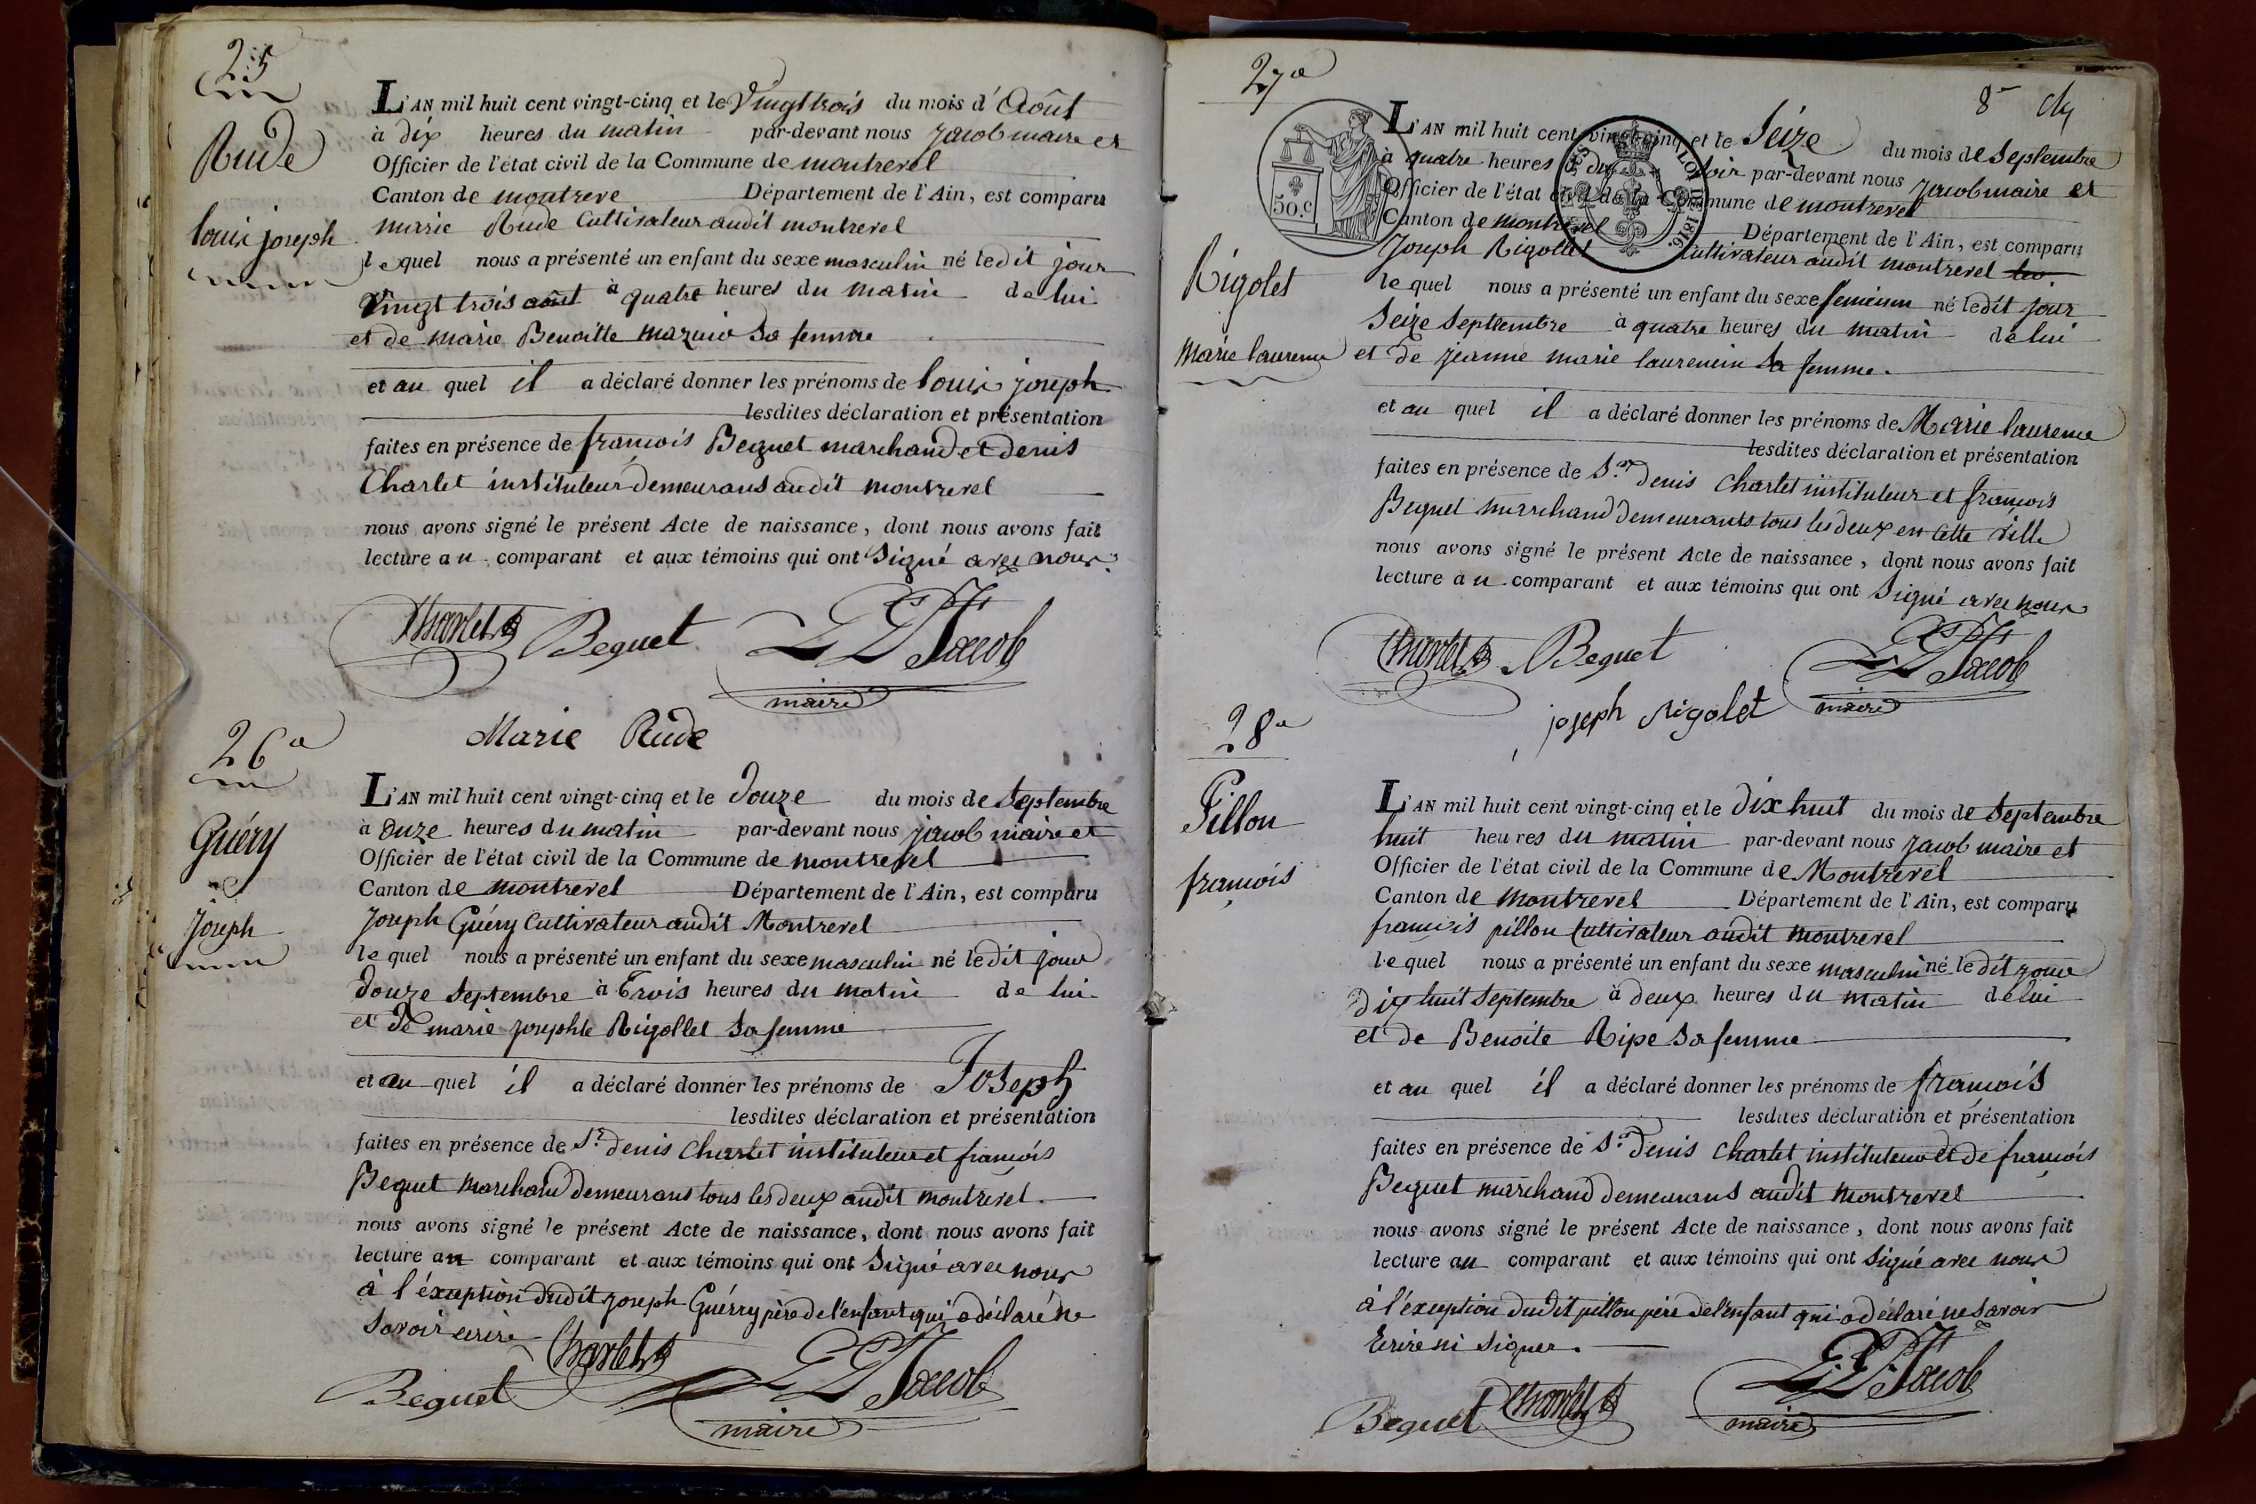 25
Rude
louis joseph
L'AN mil huit cent vingt-cinq et le Vingt trois du mois d'Août
à dix heures du matin par-devant nous jacob maire et
Officier de l'état civil de la Commune de montrevel
Canton de montreve Département de l'Ain, est comparu
marie Rude Cultivateur audit montrevel
lequel nous a présenté un enfant du sexe masculin né ledit jour
Vingt trois août à quatre heures du matin de lui
et de marie Benoitte sa femme
et au quel il a déclaré donner les prénoms de louis joseph
lesdites déclaration et présentation
faites en présence de françois Bequet marchand et denis
Charlet instituteur demeurans audit montrevel
nous avons signé le présent Acte de naissance, dont nous avons fait
lecture au comparant et aux témoins qui ont signé avec nous.
Charlet Bequet Jacob
maire
Marie Rude
26e
Guéry
joseph
L'AN mil huit cent vingt-cinq et le douze du mois de septembre
à onze heures du matin par-devant nous jacob maire et
Officier de l'état civil de la Commune de montrevel
Canton de montrevel Département de l'Ain, est comparu
joseph Guéry Cultivateur audit Montrevel
lequel nous a présenté un enfant du sexe masculin né ledit jour
douze septembre à trois heures du matin de lui
et de marie josephte Rigollet sa femme
et au quel il a déclaré donner les prénoms de Joseph
lesdites déclaration et présentation
faites en présence de Sr denis Charlet instituteur et françois
Bequet marchand demeurans tous les deux audit montrevel.
nous avons signé le présent Acte de naissance, dont nous avons fait
lecture au comparant et aux témoins qui ont signé avec nous
à l'éxception dudit joseph Guérry père de l'enfant qui a déclaré ne
savoir ecrire Charlet
Bequet Jacob
maire
27e
8e
50.c
LOI DE 1816.
Rigolet
Marie laurence
L'AN mil huit cent vingt-cinq et le Seize du mois de septembre
à quatre heures du soir par-devant nous jacob maire et
Officier de l'état civil de la Commune de montrevel
Canton de montrevel Département de l'Ain, est comparu
joseph Rigollet Cultivateur audit montrevel
lequel nous a présenté un enfant du sexe feminin né ledit jour
Seize septembre à quatre heures du matin de lui
et de jeanne marie laurencin sa femme.
et au quel il a déclaré donner les prénoms de Marie laurence
lesdites déclaration et présentation
faites en présence de Sr denis Charlet instituteur et françois
Bequet marchand demeurants tous les deux en cette ville
nous avons signé le présent Acte de naissance, dont nous avons fait
lecture au comparant et aux témoins qui ont signé avec nous
Charlet Bequet Jacob
maire
joseph rigolet
28e
Pillon
françois
L'AN mil huit cent vingt-cinq et le dix huit du mois de septembre
huit heures du matin par-devant nous jacob maire et
Officier de l'état civil de la Commune de Montrevel
Canton de montrevel Département de l'Ain, est comparu
françois pillon Cultivateur audit montrevel
lequel nous a présenté un enfant du sexe masculin né ledit jour
dix huit septembre à deux heures du matin de lui
et de Benoite Ripe sa femme
et au quel il a déclaré donner les prénoms de françois
lesdites déclaration et présentation
faites en présence de Sr denis Charlet instituteur et de françois
Bequet marchand demeurans audit montrevel
nous avons signé le présent Acte de naissance, dont nous avons fait
lecture au comparant et aux témoins qui ont signé avec nous
à l'éxception dudit pillon père de l'enfant qui a déclaré ne savoir
Ecrire ni signer.
Bequet Charlet Jacob
maire